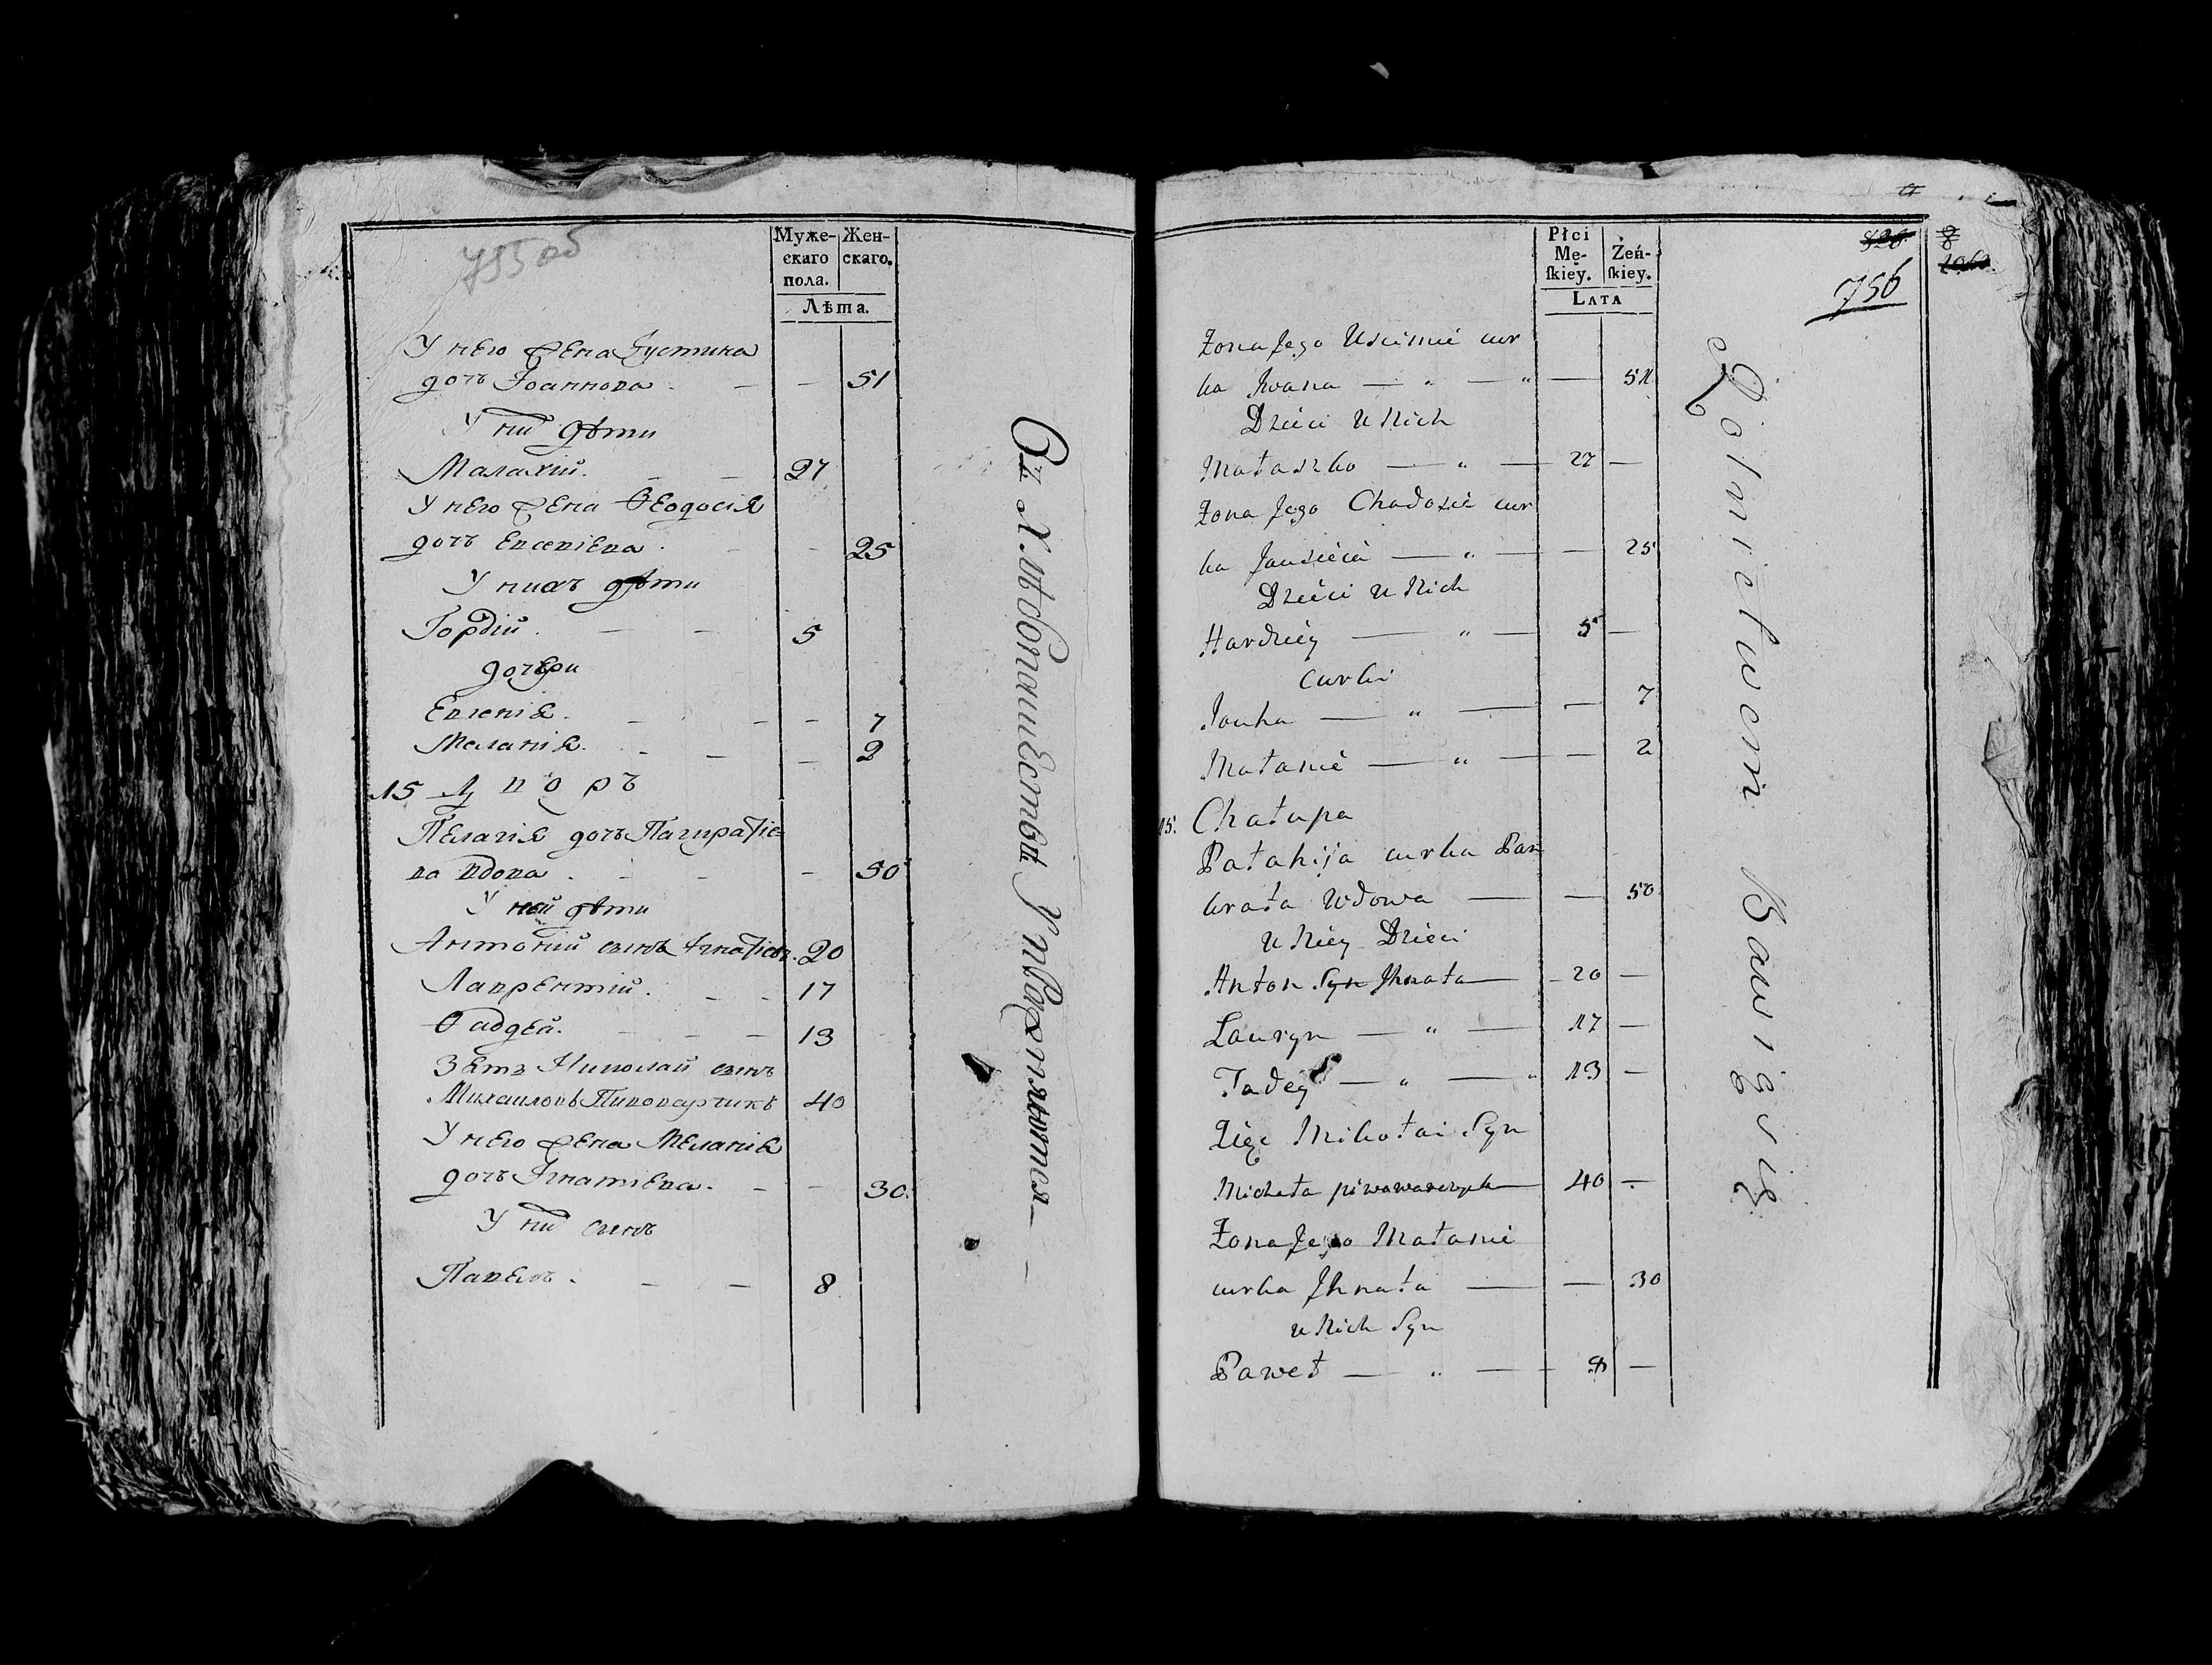 755 об
Муже-
скаго
пола.
Жен-
скаго.
Лѣта.
У него жена Іустина
дочь Іоаннова — — 51
У них дѣти
Малахій. — — 27
У него жена Ѳеодосія
дочь Евсевіева. — — 25
У нихъ дѣти
Гордій. — — 5
дочери
Евгенія. — — — 7
Меланія. — — — 2
15 Дворъ
Пелагія дочь Панкратіе
ва вдова. — — — 50
У ней дѣти
Антоній сынъ Игнатіевъ. 20
Лаврентій. — — 17
Ѳадей. — — — 13
Зять Николай сынъ
Михаиловъ Пивоварчикъ 40
У него жена Меланія
дочь Игнатіева. — — 30.
У них сынъ
Павелъ. — — 8
Въ хлѣбопашествѣ упражняются —
Płci
Mę-
ſkiéy.
Żeń-
ſkiey.
LATA
826
756
8
Żona Jego Uscinië cur
ka Iwana — „ — „ — 51
Dzieci u Nich
Małaszko — „ — 27 —
Żona Jego Chadosië cur
ka Jausieia — „ — — 25
Dzieci u Nich
Hardziey — „ — 5 —
Curki
Jauha — „ — — 7
Małanië — „ — — 2
15. Chałupa
Pałahija curka Pan
krata Wdowa — — 50
u Niey Dzieci
Anton Syn Ihnata — 20 —
Lauryn — „ — 17 —
Tadey — „ — „ 13 —
Zięć Mikołai Syn
Michała piwowarczyk — 40 —
Żona Jego Małanië
curka Ihnata — — 30
u Nich Syn
Paweł — „ — 8 —
Rolnictwem Bawią się